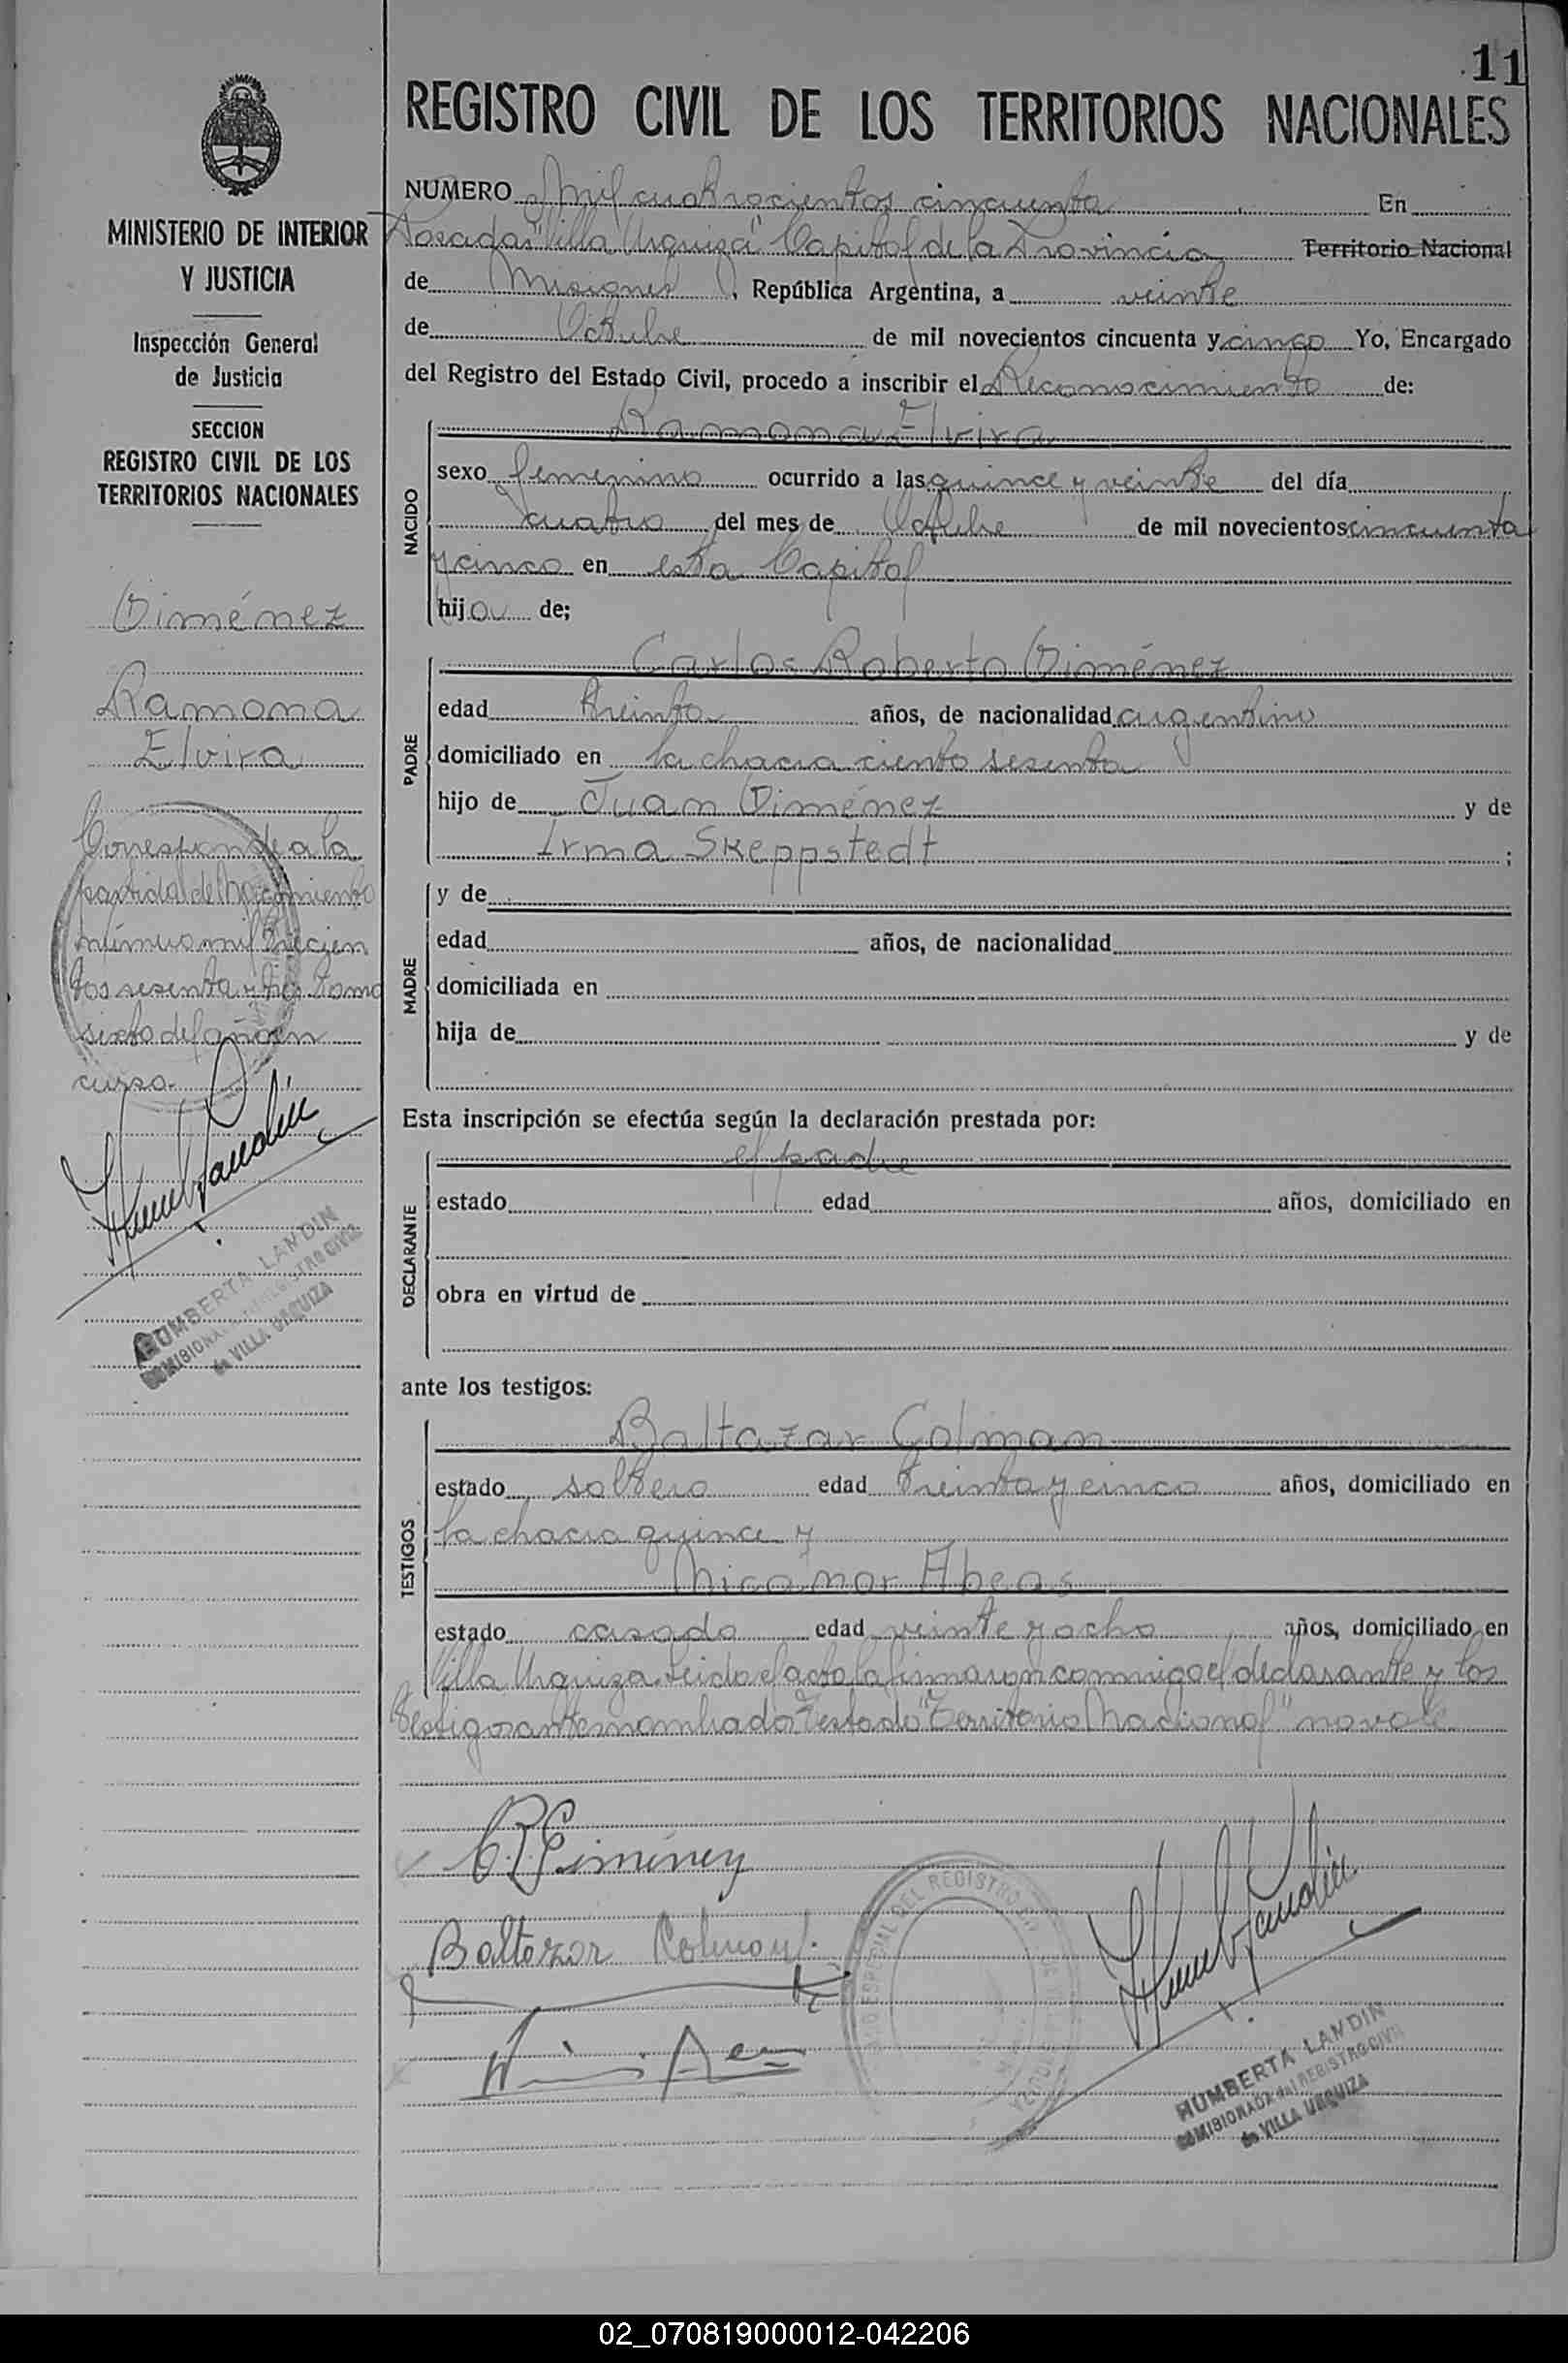 11
REGISTRO CIVIL DE LOS TERRITORIOS NACIONALES
MINISTERIO DE INTERIOR
Y JUSTICIA
Inspección General
de Justicia
SECCION
REGISTRO CIVIL DE LOS
TERRITORIOS NACIONALES
Giménez
Ramona
Elvira
Corresponde a la
partida de Nacimiento
número mil trecien
tos sesenta y tres tomo
sexto del año en
curso.
HUMBERTA LANDIN
COMISIONADA del REGISTRO CIVIL
de VILLA URQUIZA
NUMERO Mil cuatrocientos cincuenta En
Posadas "Villa Urquiza" Capital de la Provincia Territorio Nacional
de Misiones, República Argentina, a veinte
de Octubre de mil novecientos cincuenta y cinco Yo, Encargado
del Registro del Estado Civil, procedo a inscribir el Reconocimiento de:
NACIDO
Ramona Elvira
sexo femenino ocurrido a las quince y veinte del día
cuatro del mes de Octubre de mil novecientos cincuenta
y cinco en esta Capital
hija de;
PADRE
Carlos Roberto Giménez
edad treinta años, de nacionalidad argentino
domiciliado en la chacra ciento sesenta
hijo de Juan Giménez y de
Irma Skeppstedt ;
MADRE
y de
edad años, de nacionalidad
domiciliada en
hija de y de
Esta inscripción se efectúa según la declaración prestada por:
DECLARANTE
el padre
estado edad años, domiciliado en
obra en virtud de
ante los testigos:
TESTIGOS
Baltazar Colman
estado soltero edad treinta y cinco años, domiciliado en
la chacra quince y
Nicanor Abeas
estado casado edad veinte y ocho años, domiciliado en
Villa Urquiza. Leido el acta la firmaron conmigo el declarante y los
testigos antes nombrados Testado "Territorio Nacional" no vale
C.R. Giménez
Baltazar Colman
HUMBERTA LANDIN
COMISIONADA del REGISTRO CIVIL
de VILLA URQUIZA
02_070819000012-042206